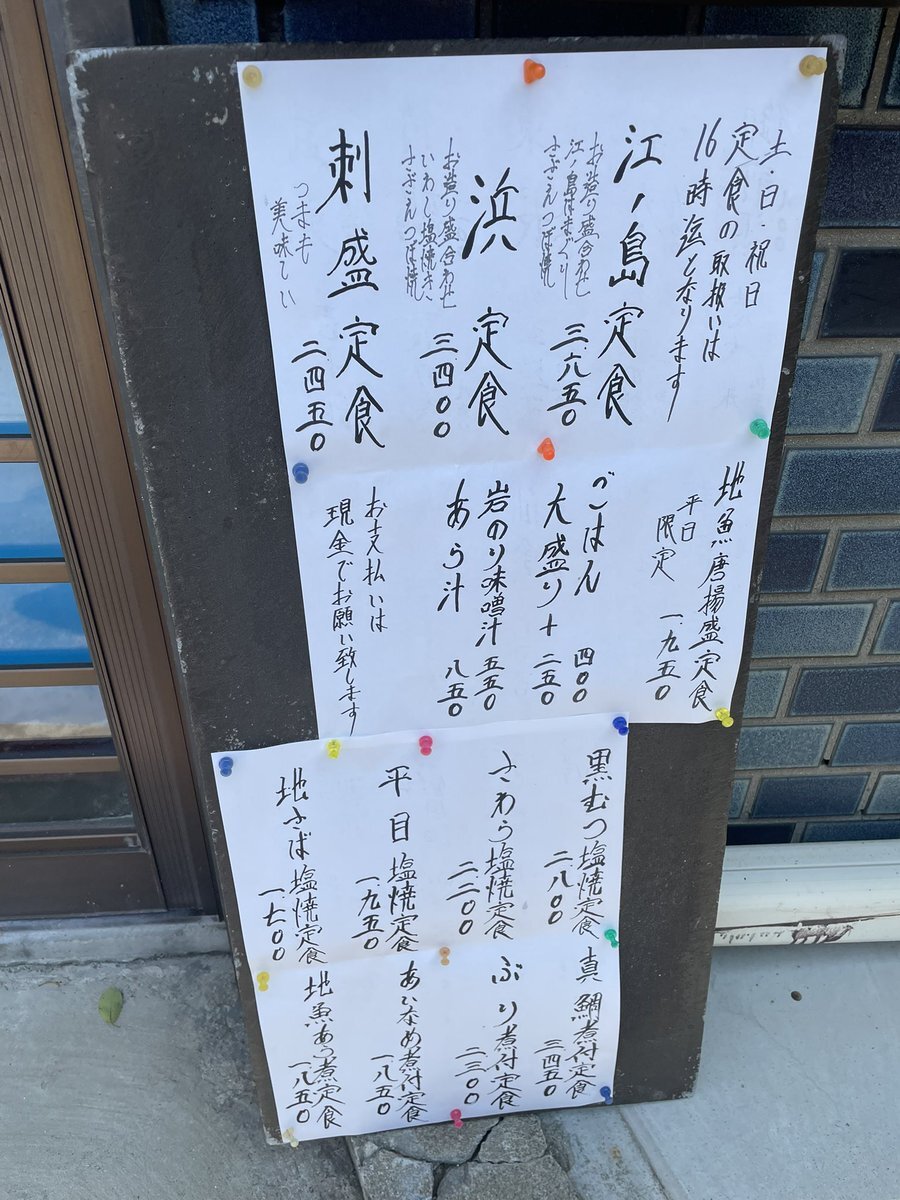 土・日・祝日
定食の取扱いは
16時迄となります
江ノ島定食
三.六五〇
お造り盛合わせ
江ノ島はまぐり
さざえつぼ焼
浜定食
三.四〇〇
お造り盛合わせ
いわし塩焼き
さざえつぼ焼
刺盛定食
二四五〇
つまも
美味しい
地魚唐揚盛定食
平日
限定
一.九五〇
ごはん 四〇〇
大盛り+ 二五〇
岩のり味噌汁 五五〇
あら汁 八五〇
お支払いは
現金でお願い致します
黒むつ塩焼定食
二.八〇〇
さわら塩焼定食
二.二〇〇
平目塩焼定食
一.九五〇
地さば塩焼定食
一.七〇〇
真鯛煮付定食
三四五〇
ぶり煮付定食
二三〇〇
あいなめ煮付定食
一.八五〇
地魚あら煮定食
一.八五〇